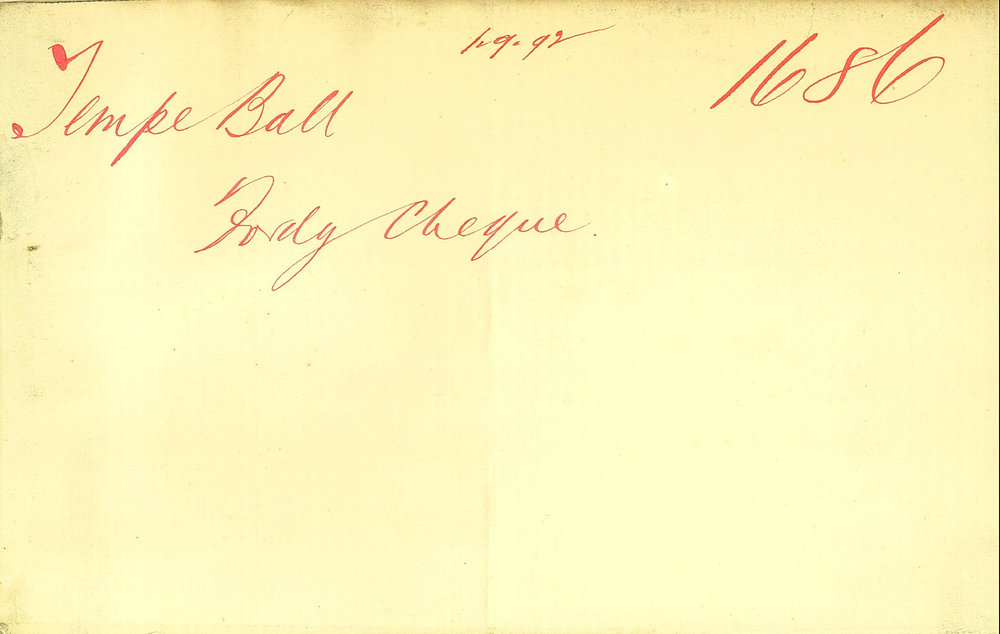 1.9.92
1686
Tempe Ball
Fordg Cheque.